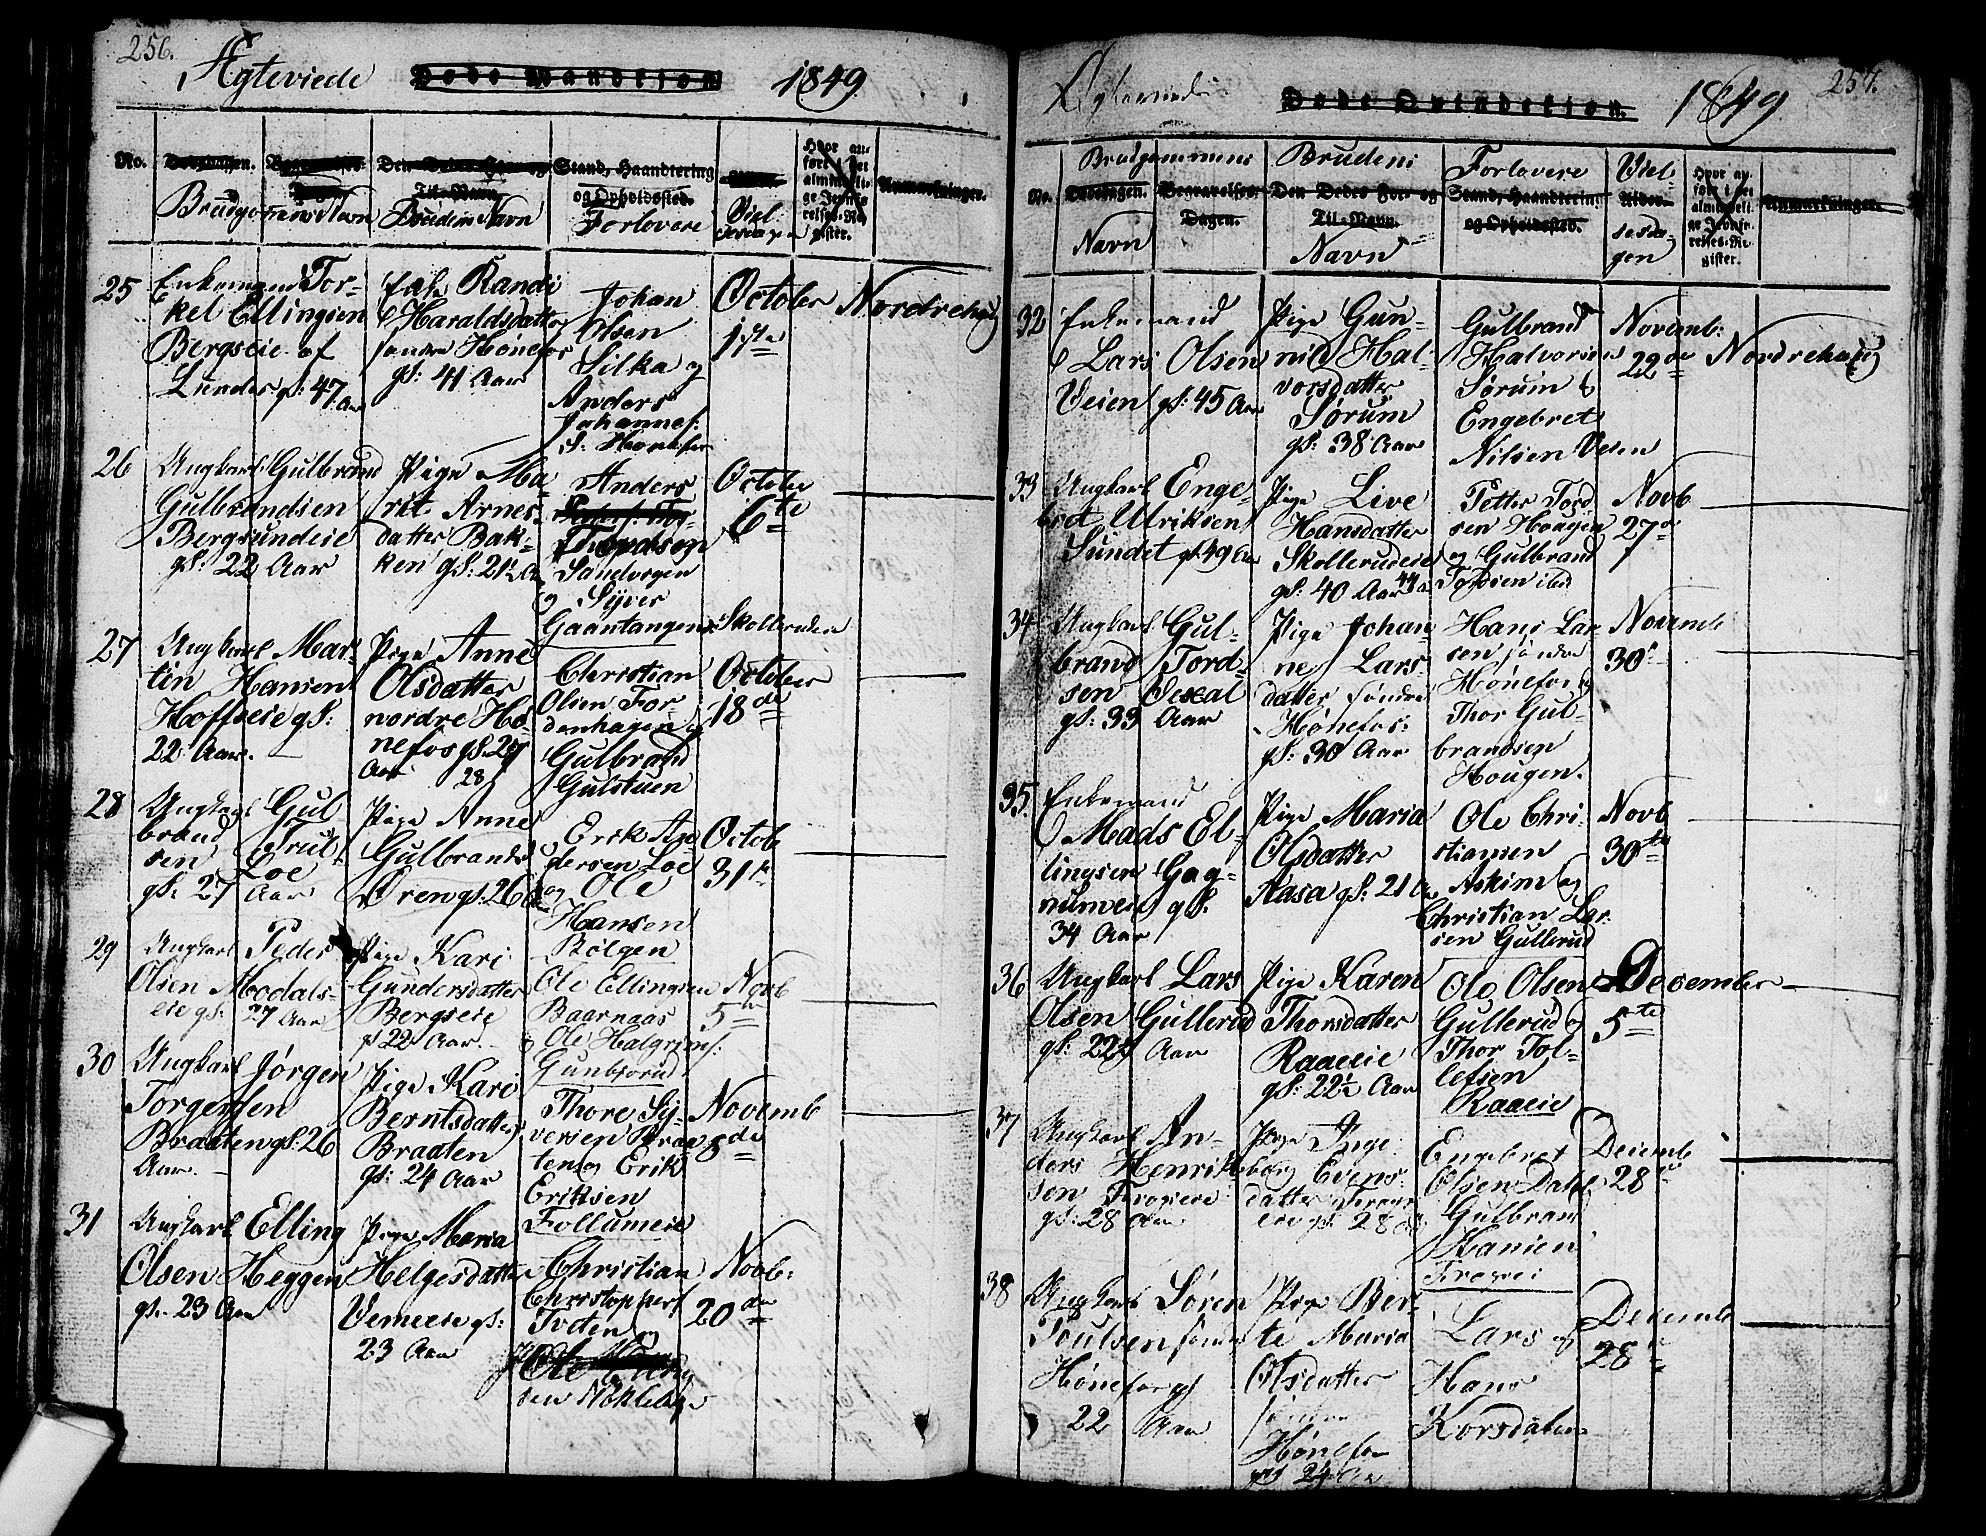 256.
Ægteviede
Døde Mandkjøn
1849
No.
Dødsdagen.
Begravelses-
Dagen.
Brudgommens Navn
Den Dødes For- og
Til-Navn.
Brudens Navn
Stand, Haandtering
og Opholdssted.
Forlovere
Viel
sesdagen
Hvor an-
ført i det
almindeli-
ge Jevnfø-
relses-Re-
gister.
Anmærkninger.
25
Enkemand Tor-
kel Ellingsen
Bergseie af
Lunder gl: 47 Aar
Enke Randi
Haraldsdatter
søndre Hønefos
gl: 41 Aar
Johan
Olsen
Silka og
Anders
Johannes:
S: Hønefos
October
1ste
Nordrehaug
26
Ungkarl Gulbrand
Gulbrandsen
Bergsundeie
gl: 22 Aar
Pige Ma-
rit Arnes-
datter Bak-
ken gl: 21½ A
Anders
Thordsen
Sandvigen
og Syver
Gaantangen
Skollerudeie
October
6te
27
Ungkarl Mar-
tin Hansen
Hoffseie gl:
22 Aar.
Pige Anne
Olsdatter
nordre Hø-
nefos gl. 27
Aar 28
Christian
Olsen For
denhagen og
Gulbrand
Gulstuen
October
18de
28
Ungkarl Gul
brand Trul-
sen Loe
gl: 27 Aar
Pige Anne
Gulbrands
Øren gl: 26
Erik An
dersen Loe
og Ole
Hansen
Bølgen
Octob
31te
29
Ungkarl Peder
Olsen Modals-
eie gl: 27 Aar
Pige Kari
Gundersdatter
Bergseie
gl 22 Aar.
Ole Ellingsen
Baarnaas
og Ole Halgrims:
Gunbjorud
Novb
5te
30
Ungkarl Jørgen
Torgersen
Braaten gl: 26
Aar.
Pige Kari
Berntsdatter
Braaten
gl: 24 Aar
Thore Sy-
versen Braa
ten og Erik
Eriksen
Follumeie
Novemb
8de
31
Ungkarl Elling
Olsen Heggen
gl. 23 Aar
Pige Maria
Helgesdatter
Vemeeie gl:
23 Aar
Christian
Christophers
Tvéten
Ole
sen Nökleby
Novb:
20de
257.
Ægteviede
Døde Qvindekjøn.
1849
No.
Brudgommens
Dødsdagen.
Begravelses-
Dagen.
Navn
Brudens
Den Dødes For- og
Til-Navn.
Navn
Forlovere
Stand, Haandtering
og Opholdssted.
Viel
Alder.
sesda-
gen
Hvor an-
føle i det
almindeli-
ge Jevnfø-
relses-Re-
gister.
Anmærkninger.
32
Enkemand
Lars Olsen
Veien gl: 45 Aar
Pige Gun-
nild Hal-
vorsdatter
Sørum
gl: 38 Aar
Gulbrand
Halvorsen
Sørum &
Engebret
Nilsen Veien
Novemb:
22de
Nordrehaug
33
Ungkarl Enge-
bret Ulriksen
Sundet gl: 49 Aar
Pige Live
Hansdatter
Skollerudeie
gl: 40 Aar 44
Petter Tord
sen Hougen
og Gulbrand
Tordsen ibid
Novb
27de
34
Ungkarl Gul-
brand Tord-
sen Vexal
gl: 33 Aar
Pige Johan
ne Lars-
datter søndre
Hønefos:
gl: 30 Aar
Hans Lar
sen søndre
Hønefos og
Thor Gul-
brandsen
Hougen.
Novemb
30te
35.
Enkemand
Mads El-
lingsen Gag-
numeie gl:
34 Aar
Pige Maria
Olsdatter
Aasa gl: 21 A
Ole Chri-
stiansen
Askim og
Christian Lar-
sen Gullerud
Novb
30te
36
Ungkarl Lars
Olsen Gullerud
gl: 22½ Aar
Pige Karen
Thorsdatter
Raaeeie
gl: 22½ Aar
Ole Olsen
Gullerud og
Thor Tol-
lefsen
Raaeie
December
5te
37
Ungkarl An-
ders Henrik-
sen
gl: 28 Aar
Pige Inge
borg Evens-
datter
gl. 28
Engebret
Olsen Dahl
Gulbrand
Hansen
Decemb
28de
38
Ungkarl Søren
Poulsen søndre
Hønefos gl
22 Aar
Pige Ber-
te Maria
Olsdatter
søndre
Hønefos
gl 24 Aar
Lars og
Hans
Korsdalen
Decemb
28de